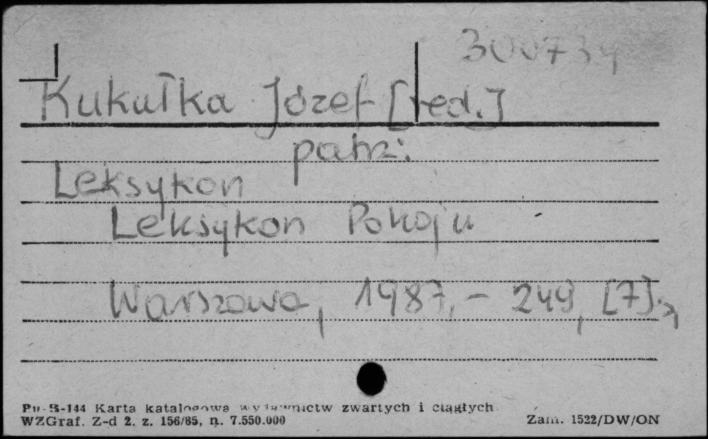 300734
Kukułka Józef [red.]
patrz:
Leksykon
Leksykon Pokoju
Warszawa, 1987, - 249, [7].
Pu-B-144 Karta katalogowa wydawnictw zwartych i ciągłych
WZGraf. Z-d 2. z. 156/85, n. 7.550.000
Zam. 1522/DW/ON